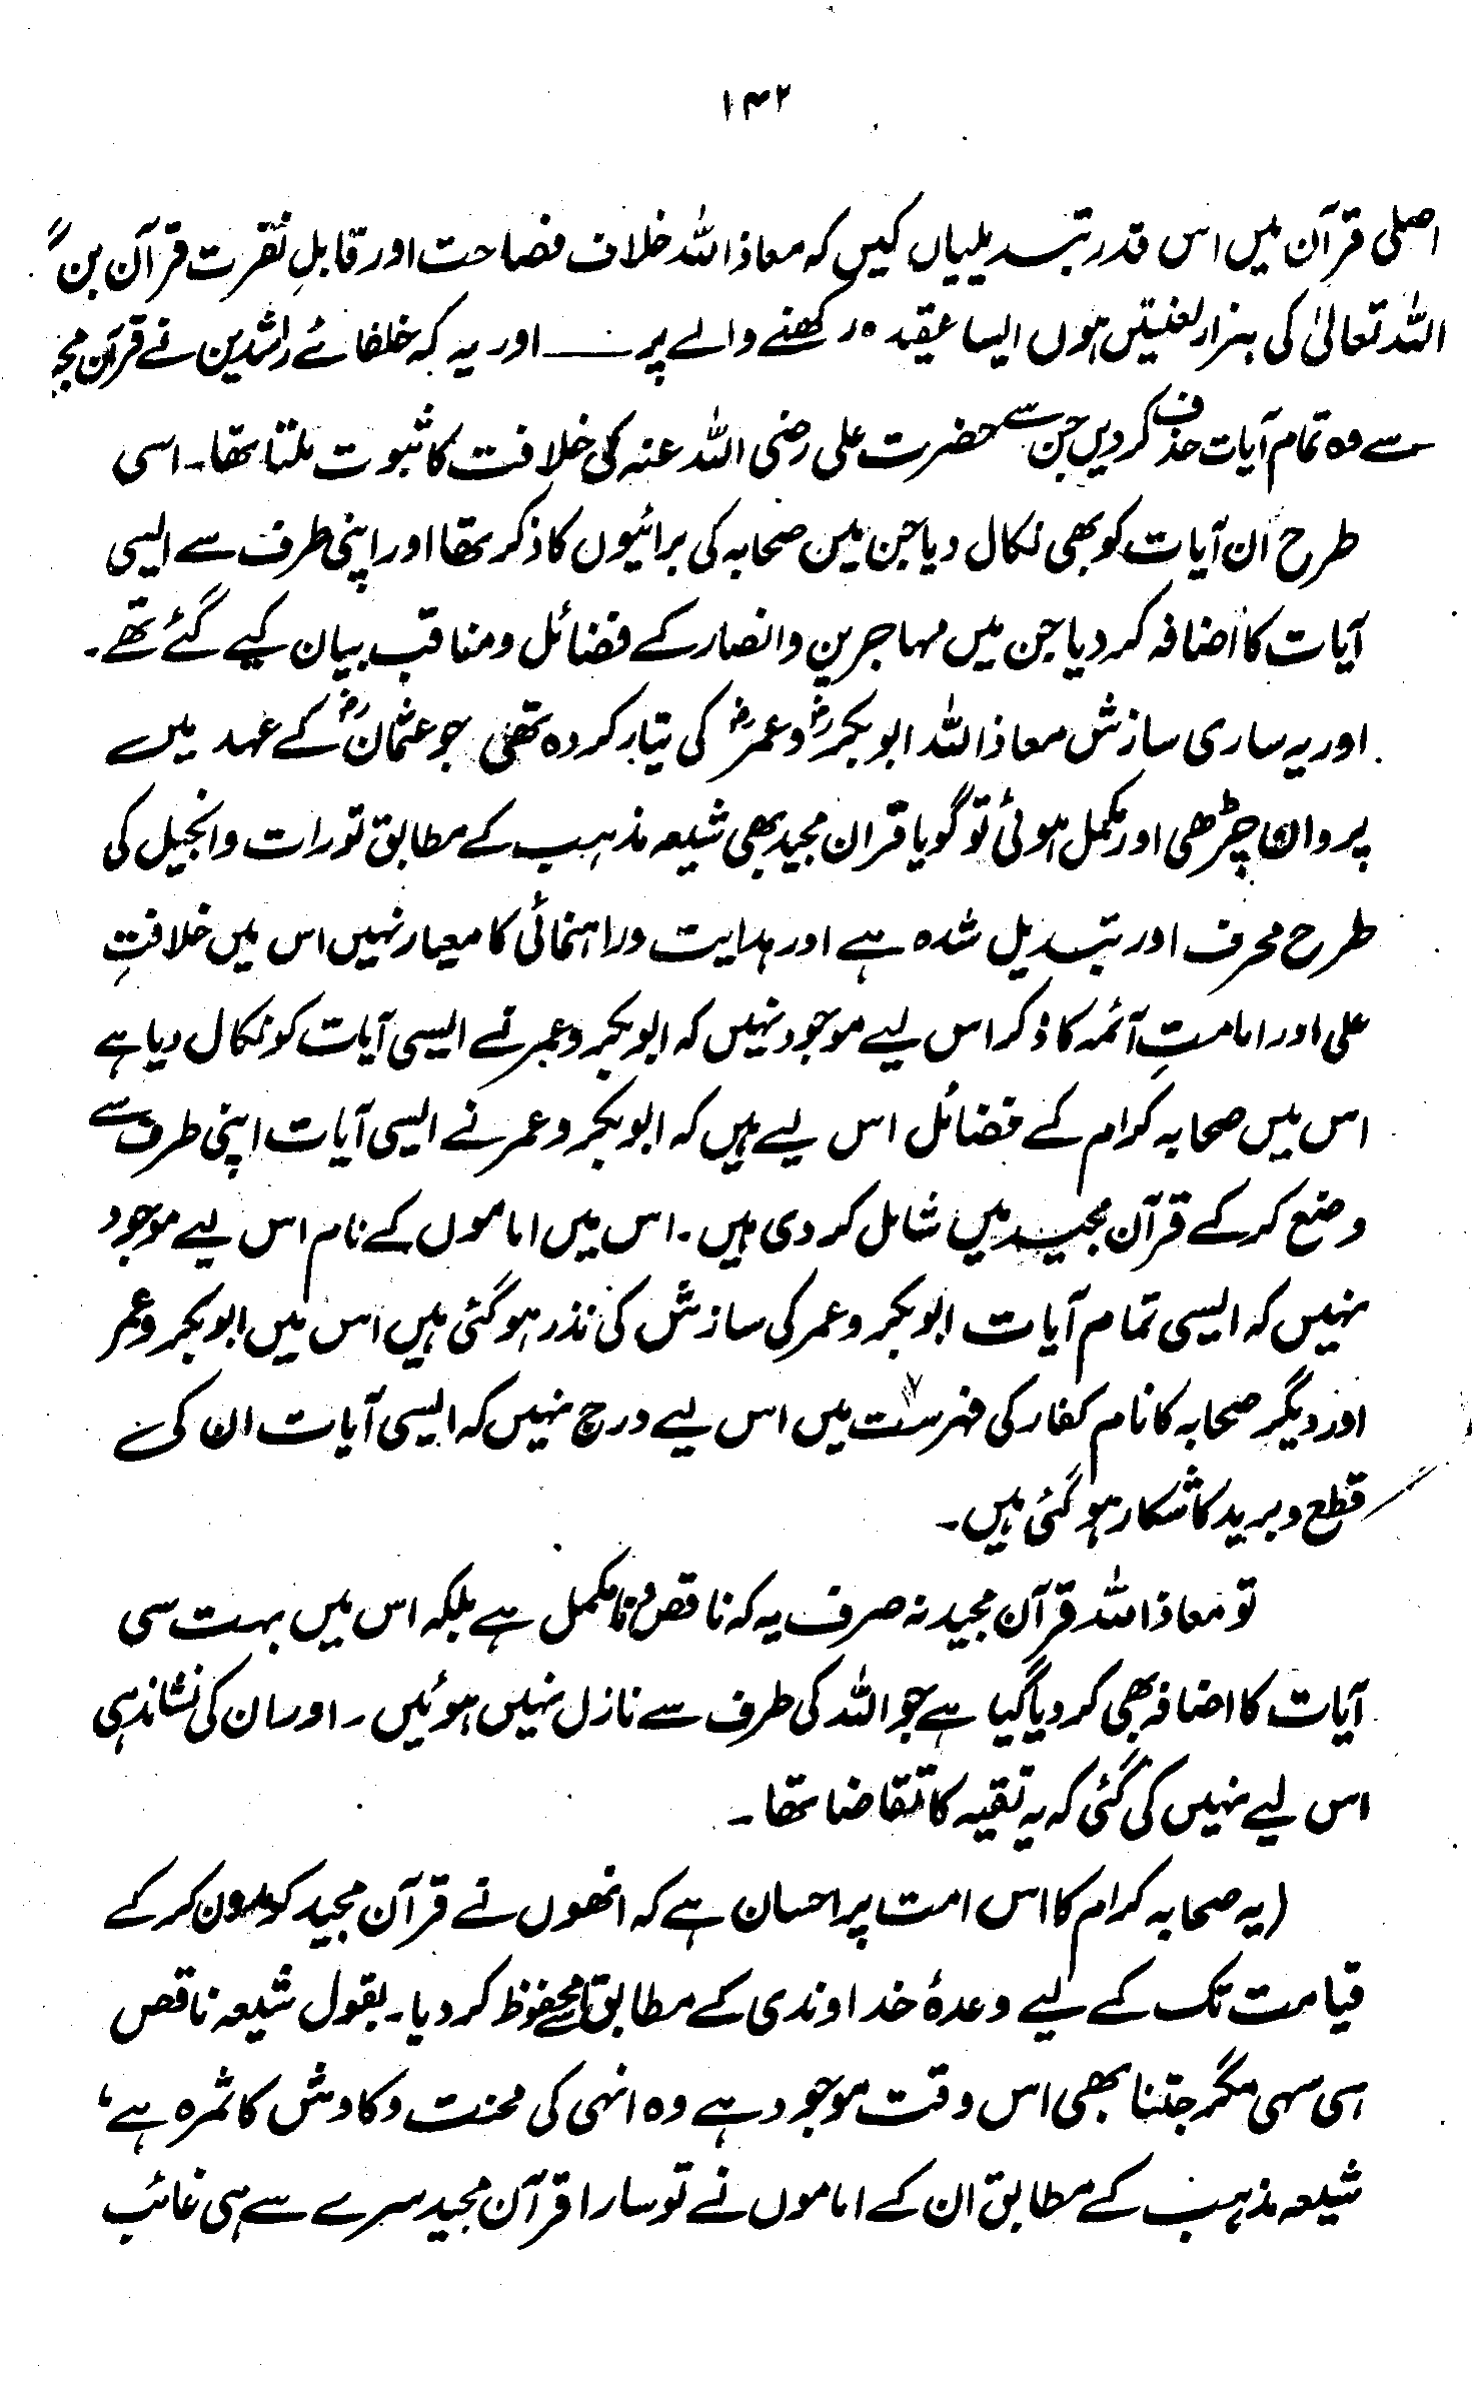 ۱۴۲
اصلی قرآن میں اس قدر تبدیلیاں کیں کہ معاذ اللہ خلاف فصاحت اور قابلِ نفرت قرآن بن گ
اللہ تعالیٰ کی ہزار لعنتیں ہوں ایسا عقیدہ رکھنے والے پر ـــــ اور یہ کہ خلفائے راشدین نے قرآن مج
سے وہ تمام آیات حذف کر دیں جن سے حضرت علی رضی اللہ عنہ کی خلافت کا ثبوت ملتا تھا۔ اسی
طرح ان آیات کو بھی نکال دیا جن میں صحابہ کی برائیوں کا ذکر تھا اور اپنی طرف سے ایسی
آیات کا اضافہ کر دیا جن میں مہاجرین و انصار کے فضائل و مناقب بیان کیے گئے تھے۔
اور یہ ساری سازش معاذ اللہ ابوبکرؓ و عمرؓ کی تیار کردہ تھی جو عثمانؓ کے عہد میں
پروان چڑھی اور مکمل ہوئی تو گویا قران مجید بھی شیعہ مذہب کے مطابق تورات و انجیل کی
طرح محرف اور تبدیل شدہ ہے اور ہدایت و راہنمائی کا معیار نہیں اس میں خلافتِ
علی اور امامتِ آئمہ کا ذکر اس لیے موجود نہیں کہ ابوبکر و عمر نے ایسی آیات کو نکال دیا ہے
اس میں صحابہ کرام کے فضائل اس لیے ہیں کہ ابوبکر و عمر نے ایسی آیات اپنی طرف سے
وضع کر کے قرآن مجید میں شامل کر دی ہیں۔ اس میں اماموں کے نام اس لیے موجود
نہیں کہ ایسی تمام آیات ابوبکر و عمر کی سازش کی نذر ہو گئی ہیں اس میں ابوبکر و عمر
اور دیگر صحابہ کا نام کفار کی فہرست میں اس لیے درج نہیں کہ ایسی آیات ان کی
قطع و برید کا شکار ہو گئی ہیں۔
تو معاذ اللہ قرآن مجید نہ صرف یہ کہ ناقص و نامکمل ہے بلکہ اس میں بہت سی
آیات کا اضافہ بھی کر دیا گیا ہے جو اللہ کی طرف سے نازل نہیں ہوئیں۔ اور ان کی نشاندہی
اس لیے نہیں کی گئی کہ یہ تقیہ کا تقاضا تھا۔
(یہ صحابہ کرام کا اس امت پر احسان ہے کہ انھوں نے قرآن مجید کو مدون کر کے
قیامت تک کے لیے وعدۂ خداوندی کے مطابق اسے محفوظ کر دیا۔ بقول شیعہ ناقص
ہی سہی مگر جتنا بھی اس وقت موجود ہے وہ انہی کی محنت و کاوش کا ثمرہ ہے،
شیعہ مذہب کے مطابق ان کے اماموں نے تو سارا قرآن مجید سرے سے ہی غائب